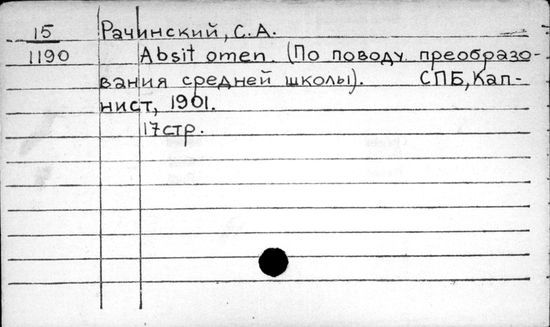 15 Рачинский, С.А.
1190 Absit omen. (По поводу преобразо-
вания средней школы). СПБ, Кап-
нист, 1901.
17стр.